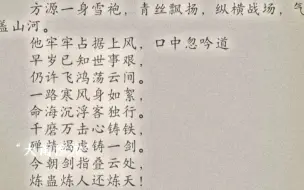 方源一身雪袍，青丝飘扬，纵横战场，气
盖山河。
他牢牢占据上风，口中忽吟道
早岁已知世事艰，
仍许飞鸿荡云间。
一路寒风身如絮，
命海沉浮客独行。
千磨万击心铸铁，
殚精竭虑铸一剑。
今朝剑指叠云处，
炼蛊炼人还炼天！